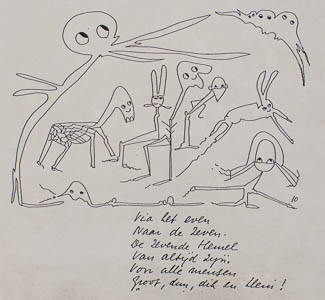 10
Via het even
Naar de zeven.
De zevende Hemel
Van altijd zijn.
Voor alle mensen
Groot, dun, dik en klein!